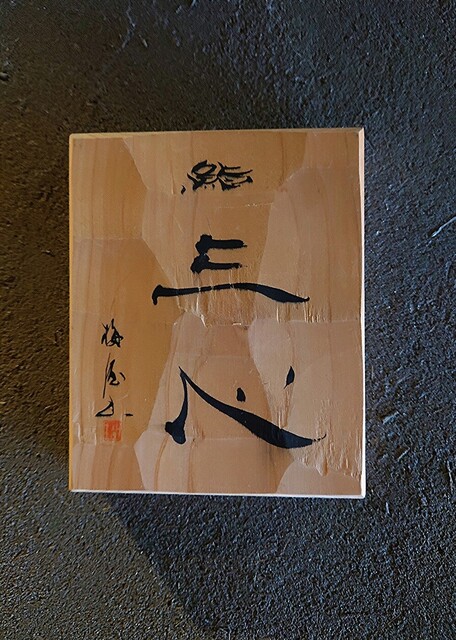 鮨 三心
梅